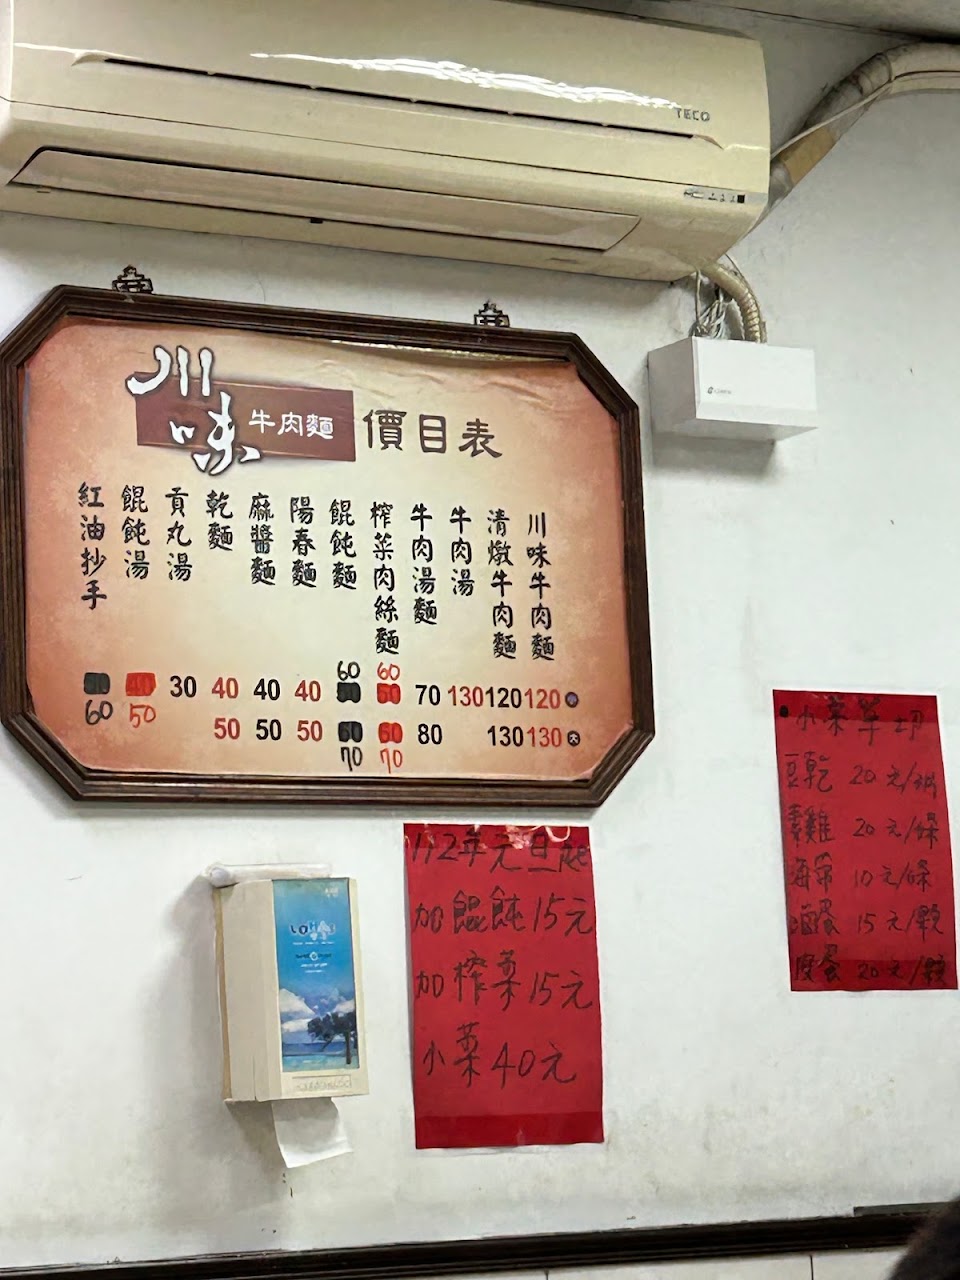 TECO
川味 牛肉麵 價目表
川味牛肉麵 120 小 130 大
清燉牛肉麵 120 130
牛肉湯 130
牛肉湯麵 70 80
榨菜肉絲麵 60 70
餛飩麵 60 70
陽春麵 40 50
麻醬麵 40 50
乾麵 40 50
貢丸湯 30
餛飩湯 50
紅油抄手 60
112年元旦起
加餛飩15元
加榨菜15元
小菜40元
小菜單切
豆乾 20元/塊
素雞 20元/條
海帶 10元/條
滷蛋 15元/顆
皮蛋 20元/顆